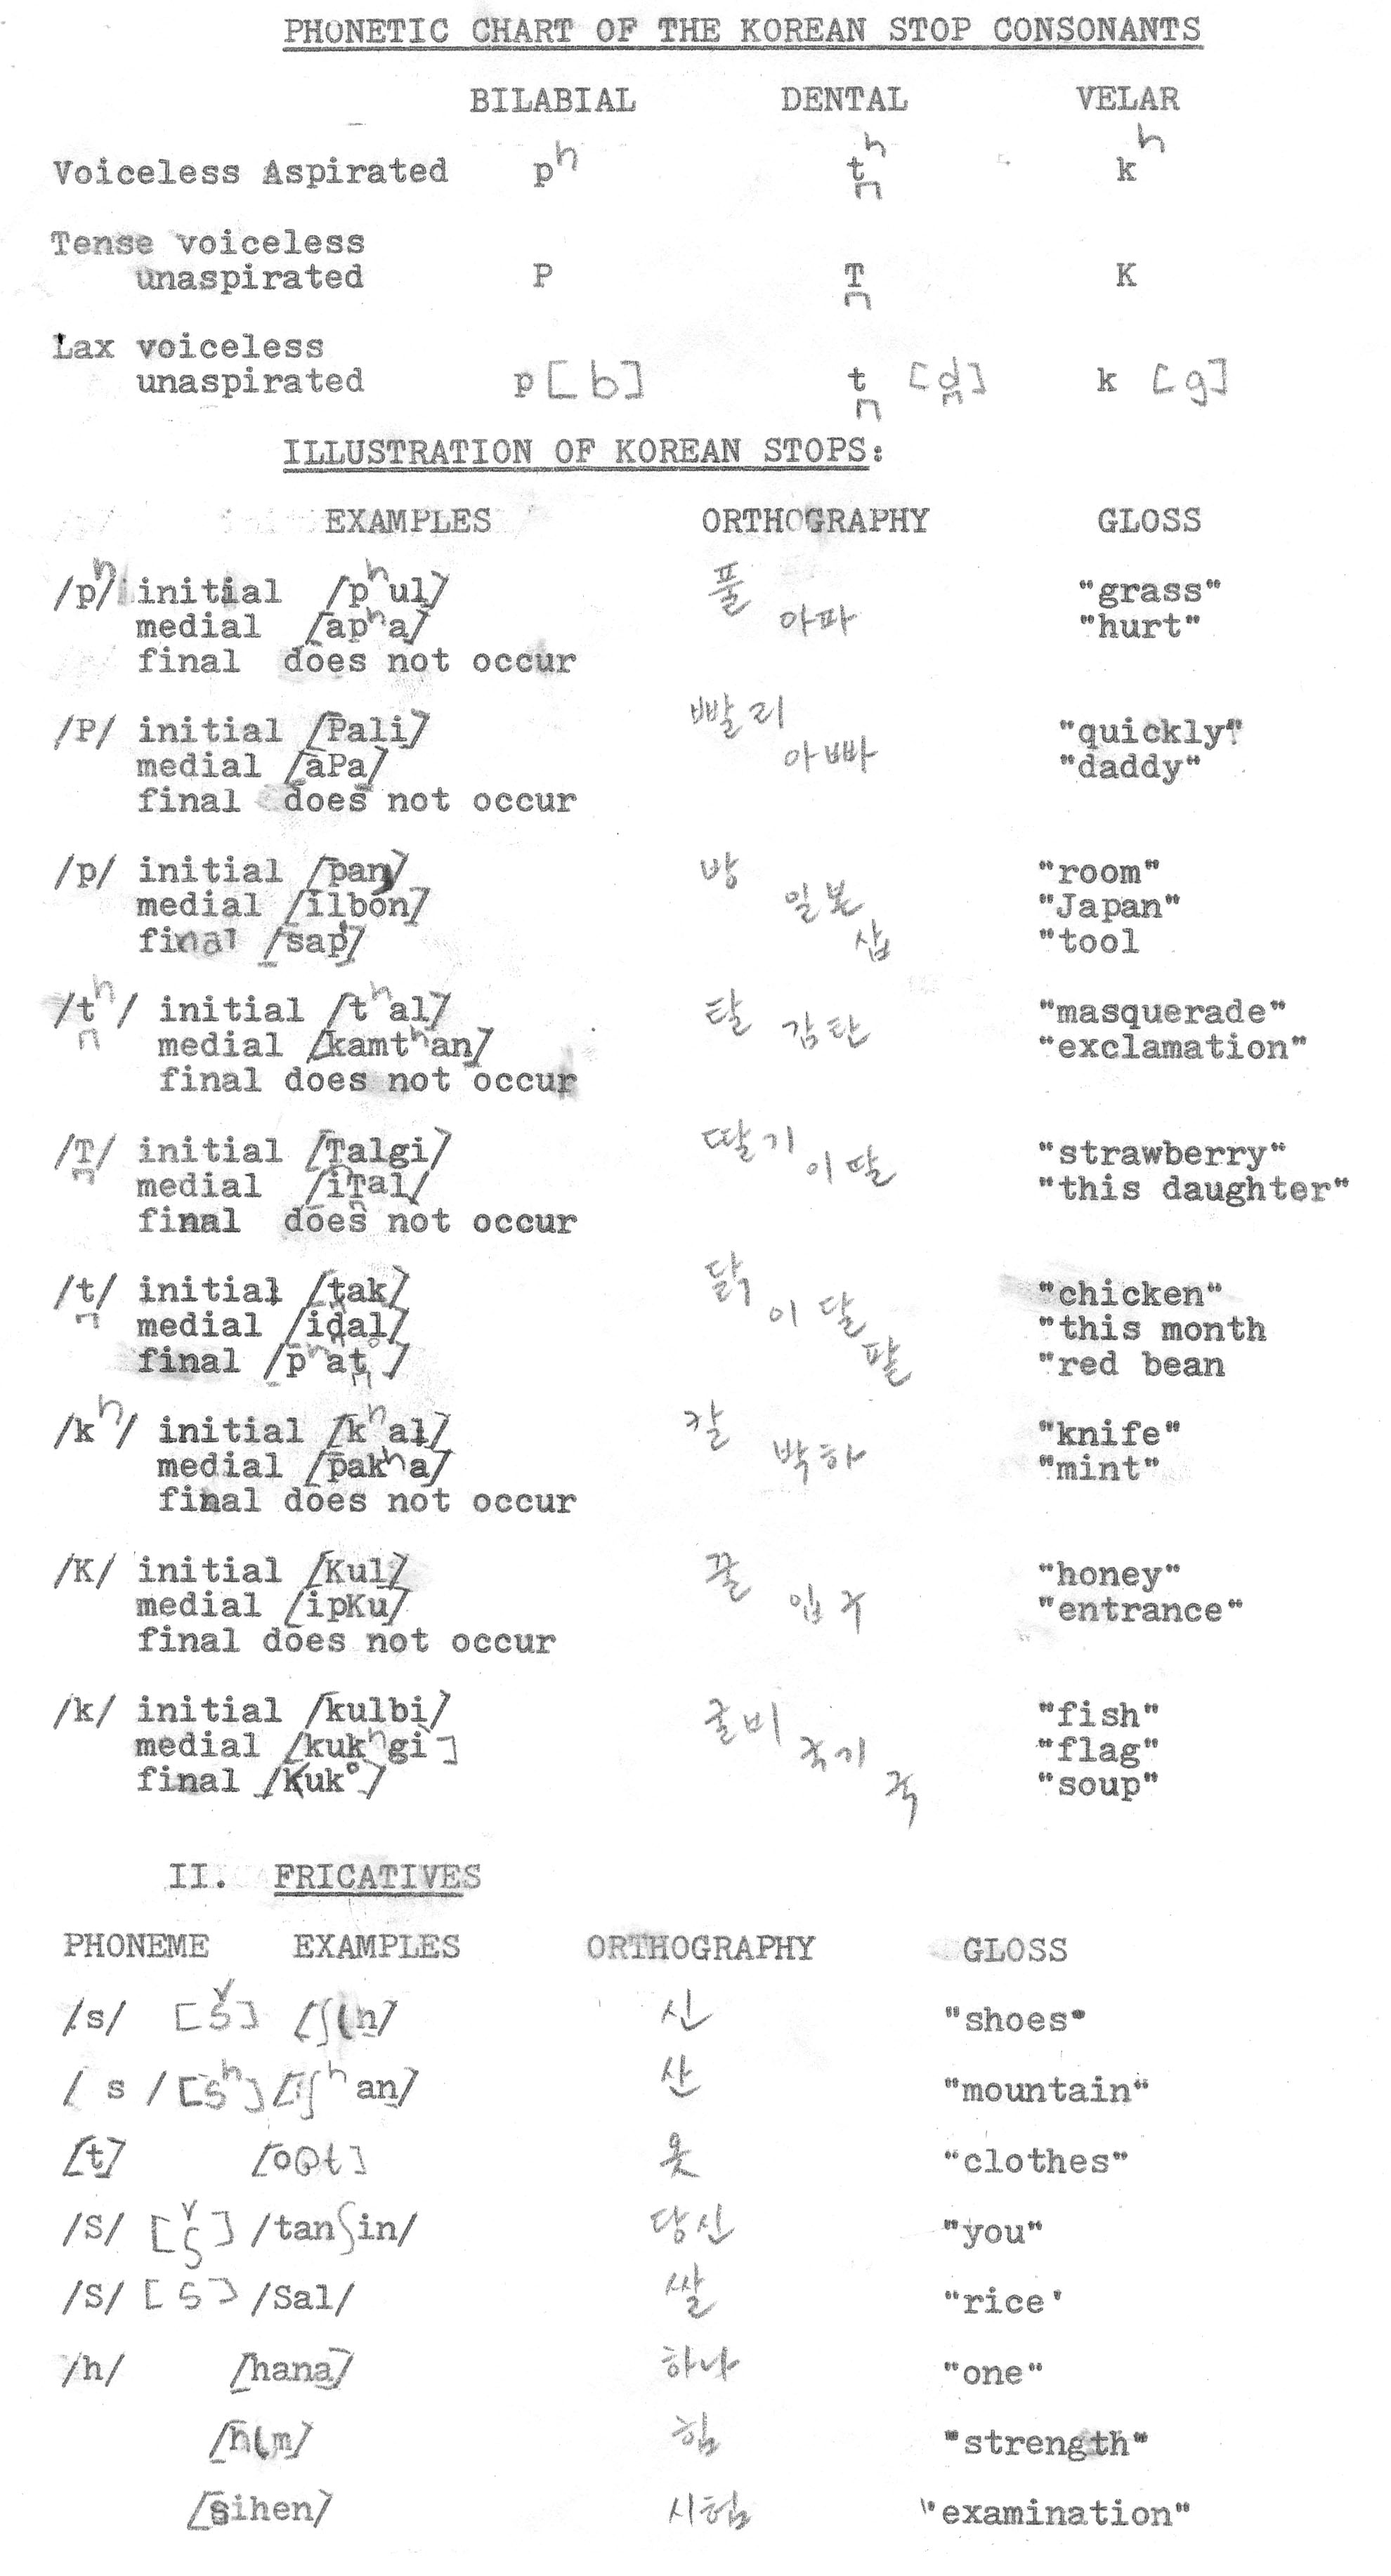 PHONETIC CHART OF THE KOREAN STOP CONSONANTS
BILABIAL DENTAL VELAR
Voiceless Aspirated pʰ t̪ʰ kʰ
Tense voiceless
unaspirated P T̪ K
Lax voiceless
unaspirated p [b] t̪ [d̪] k [g]
ILLUSTRATION OF KOREAN STOPS:
EXAMPLES ORTHOGRAPHY GLOSS
/pʰ/ initial [pʰul] 풀 "grass"
medial [apʰa] 아파 "hurt"
final does not occur
/P/ initial [Pali] 빨리 "quickly"
medial [aPa] 아빠 "daddy"
final does not occur
/p/ initial [paŋ] 방 "room"
medial [ilbon] 일본 "Japan"
final [sap] 삽 "tool
/t̪ʰ/ initial [tʰal] 탈 "masquerade"
medial [kamtʰan] 감탄 "exclamation"
final does not occur
/T̪/ initial [Talgi] 딸기 "strawberry"
medial [iT̪al] 이 딸 "this daughter"
final does not occur
/t̪/ initial [tak] 닭 "chicken"
medial [idal] 이 달 "this month
final [pʰat̪°] 팥 "red bean
/kʰ/ initial [kʰal] 칼 "knife"
medial [pakʰa] 박하 "mint"
final does not occur
/K/ initial [Kul] 꿀 "honey"
medial [ipKu] 입구 "entrance"
final does not occur
/k/ initial [kulbi] 굴비 "fish"
medial [kukʰgi] 국기 "flag"
final [Kuk°] 국 "soup"
II. FRICATIVES
PHONEME EXAMPLES ORTHOGRAPHY GLOSS
/s/ [š] [ʃin] 신 "shoes"
/ s / [sʰ] [ʃʰan] 산 "mountain"
[t] [oot] 옷 "clothes"
/S/ [š] /tanʃin/ 당신 "you"
/S/ [s] /Sal/ 쌀 "rice'
/h/ [hana] 하나 "one"
[him] 힘 "strength"
[sihen] 시험 "examination"